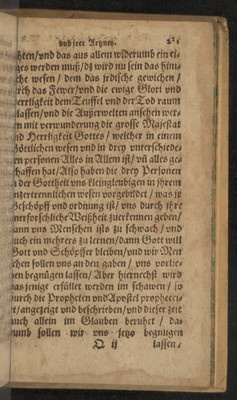 und jrer Artzney.
hten/ und das aus allem widerumb ein ei-
es werden muß/ dz wird nu sein das him-
che wesen/ dem das jrdische gewichen/
rch das Fewr/ und die ewige Glori und
errligkeit dem Teuffel und der Tod raum
lassen/ und die Außerwelten ansehen wer-
n mit verwunderung die grosse Majestat
d Herrligkeit Gottes/ welcher in einem
öttlichen wesen und in drey unterschiede-
en personen Alles in Allem ist/ uñ alles ge-
haffen hat/ Also haben die drey Personen
n der Gottheit uns kleingleubigen in jhrem
nzertrennlichen wesen vorgebildet/ was je
Geschöpff und ordnung ist/ uns durch jhre
nerforschliche Weißheit zuerkennen geben/
ann uns Menschen ists zu schwach/ und
uch ein mehrers zu lernen/ dann Gott will
Gott und Schöpffer bleiben/ und wir Men-
chen sollen uns an den gaben/ uns verlie-
en begnügen lassen/ Aber hiernechst wird
as jenige erfüllet werden im schawen/ so
urch die Propheten und Apostel prophecei-
t/ angezeigt und beschrieben/ und dieser zeit
uch allein im Glauben beruhet/ da-
umb sollen wir uns jetzo begnügen
O ij lassen/